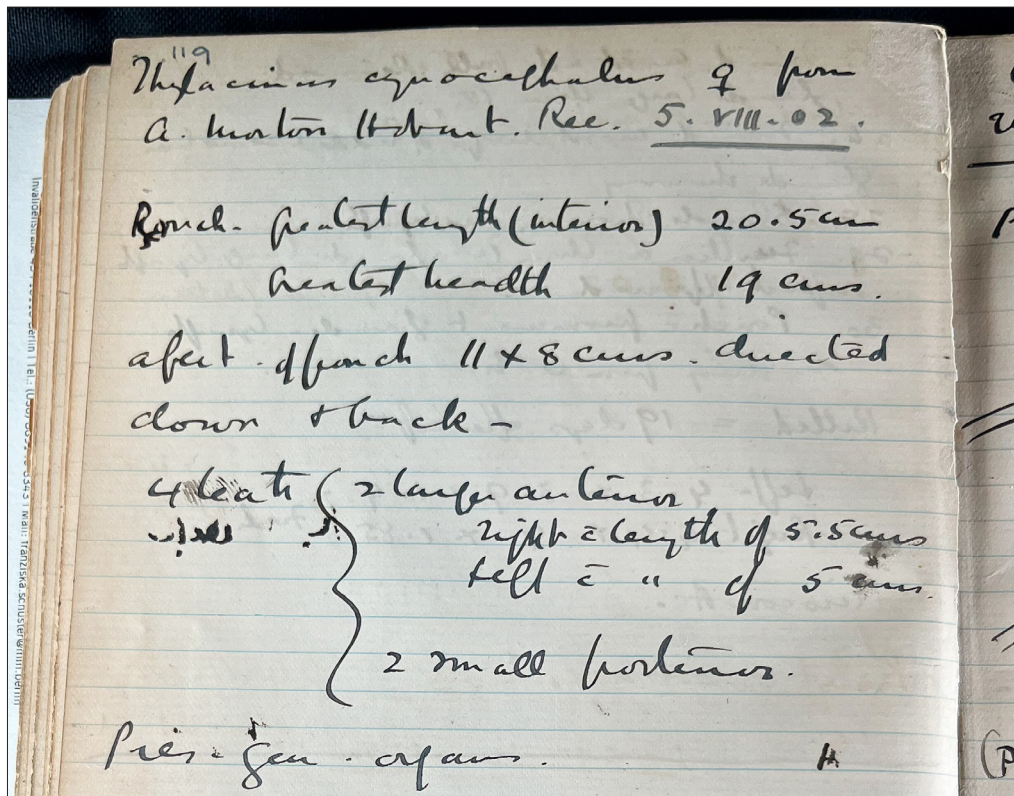 119
Thylacinus cynocephalus ♀ from
A. Morton Hobart. Rec. 5. VIII. 02.
Pouch - Greatest length (interior) 20.5 cm
Greatest breadth 19 cms.
apert. of pouch 11 x 8 cms. directed
down + back -
4 teats { 2 larger anterior
right c̄ length of 5.5 cms
left c̄ " of 5 cms.
2 small posterior.
Pres. gen. organs. H.